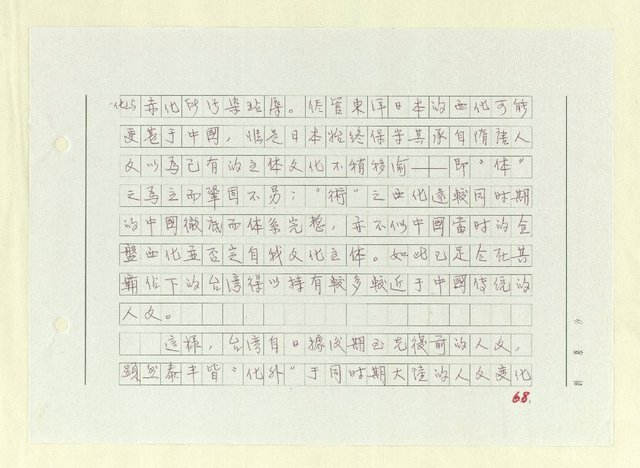 化与赤化所污染玷辱。尽管東洋日本的西化可能
更甚于中國，惟是日本始终保守其承自隋唐人
文以為己有的主体文化不稍移渝——即“体”
之為主而鞏固不易；“術”之西化遠較同时期
的中國徹底而体系完整，亦不似中國當时的全
盤西化並否定自我文化主体。如此已足令在其
霸佔下的台湾得以持有較多較近于中國传统的
人文。
這樣，台湾自日據後期至光復前的人文，
顯然泰半皆“化外”于同时期大陸的人文变化
68.